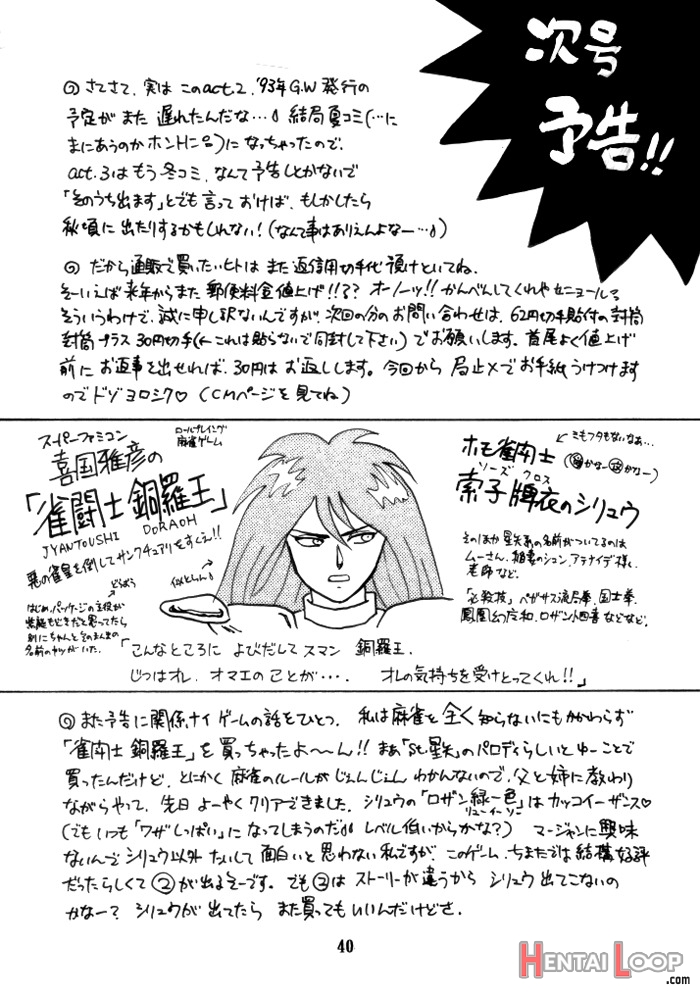 次号
予告!!
さてさて、実は このact.2、'93年G.W発行の
予定が また 遅れたんだな…♪ 結局夏コミ(…に
まにあうのか ホントに)になっちゃったので、
act.3はもう冬コミ、なんて予告しとかないで
「そのうち出ます」とでも言っておけば、もしかしたら
秋頃に 出たりするかもしれない!(なんて事はありえんよなー…♪)
だから通販で買いたいヒトは また返信用切手代 預けといてね。
そーいえば 来年からまた 郵便料金値上げ!!?? オーノーッ!! かんべんしてくれや セニョール
そういうわけで、誠に申し訳ないんですが、次回の分のお問い合わせは、62円切手貼付の封筒
封筒プラス 30円切手(←これは貼らないで同封して下さい)でお願いします。首尾よく値上げ
前に お返事を出せれば、30円は お返しします。今回から 局止メでお手紙うけつけます
のでドゾヨロシク♡(CMページを見てね)
スーパーファミコン
ロールプレイング
麻雀ゲーム
喜国雅彦の
「雀闘士 銅羅王」
JYANTOUSHI DORAOH
悪の雀皇を倒してサンクチュアリをすくえ!!
どらぼう
似とらん♪
はじめ、パッケージの主役が
紫龍もどきだと思ってたら
別にちゃんとそのまんまの
名前のヤツがいた。
ミもフタもないなぁ…
ホモ雀闘士
ソーズ クロス
索子牌衣のシリュウ
そのほか 星矢系の名前がついてるのは
ムーさん、
シュン、アテナイデ様、
老師など。
「必殺技」ペガサス流局拳、国士拳、
鳳凰幻
、ロザン小四喜などなど。
「こんなところに よびだして スマン 銅羅王、
じつはオレ、オマエのことが…、 オレの気持ちを受けとってくれ!!」
また予告に関係ナイ ゲームの話をひとつ、 私は麻雀を全く知らないにもかかわらず
「雀闘士 銅羅王」を買っちゃったよ〜ん!! まあ「St.星矢」のパロディらしいとゆーことで
買ったんだけど、とにかく 麻雀のルールがじぇんじぇん わかんないので、父と姉に教わり
ながらやって、先日 よーやくクリアできました。シリュウの「ロザン緑一色」はカッコイーザンス♡
リューイーソー
(でもいつも「ワザしっぱい」になってしまうのだ♪ レベル低いからかな?) マージャンに興味
ないんで シリュウ以外 たいして面白いと思わない私ですが、このゲーム、ちまたでは結構好評
だったらしくて ②が出るそーです。でも②は ストーリーが違うから シリュウ 出てこないの
かなー? シリュウが出てたら また買ってもいいんだけどさ。
40
HENTAI LOOP
.COM
.com